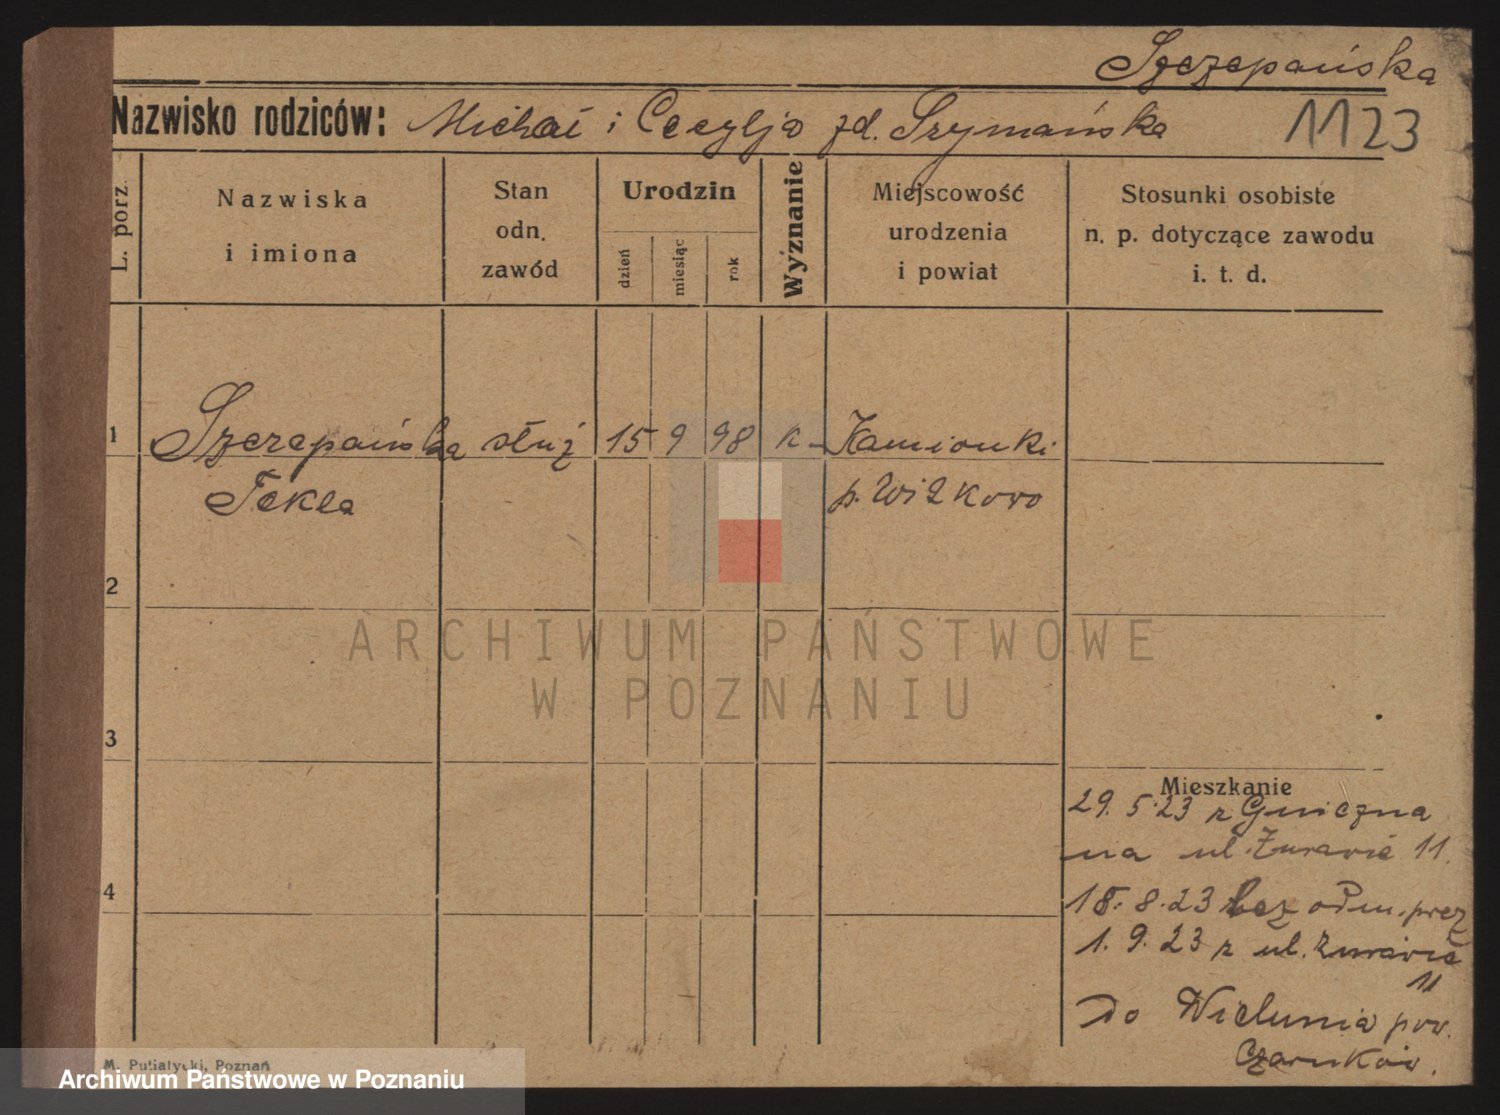 Szczepańska
Nazwisko rodziców: Michał i Cecylja zd. Szymańska 1123
L. porz.
Nazwiska
i imiona
Stan
odn.
zawód
Urodzin
dzień
miesiąc
rok
Wyznanie
Miejscowość
urodzenia
i powiat
Stosunki osobiste
n. p. dotyczące zawodu
i. t. d.
1 Szczepańska służ 15 9 98 k - Kamionki
Tekla p. Witkowo
2
ARCHIWUM PAŃSTWOWE
W POZNANIU
3
Mieszkanie
29. 5. 23 z Gniezna
na ul. Żurawia 11.
4
18. 8. 23 bez odm. prez
1. 9. 23 z ul. Żurawia
11
do Wielunia pow.
Czarnków.
M. Putiatycki, Poznań
Archiwum Państwowe w Poznaniu